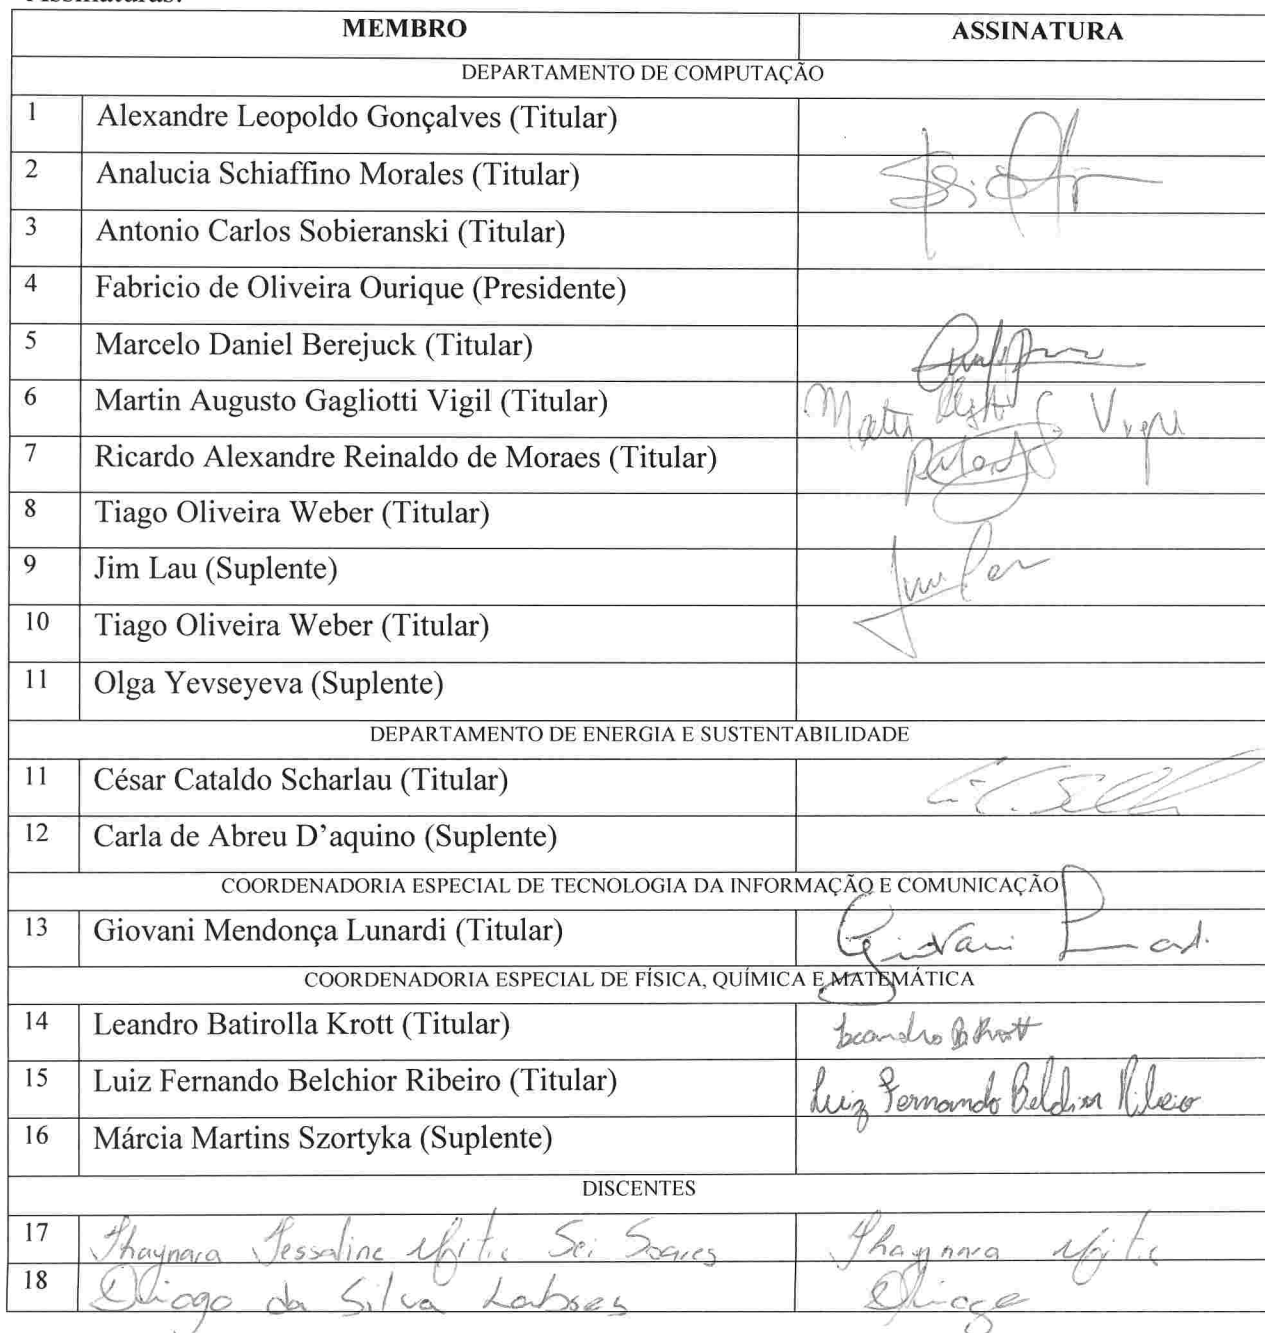 Assinaturas:
MEMBRO ASSINATURA
DEPARTAMENTO DE COMPUTAÇÃO
1 Alexandre Leopoldo Gonçalves (Titular)
2 Analucia Schiaffino Morales (Titular)
3 Antonio Carlos Sobieranski (Titular)
4 Fabricio de Oliveira Ourique (Presidente)
5 Marcelo Daniel Berejuck (Titular)
6 Martin Augusto Gagliotti Vigil (Titular)
7 Ricardo Alexandre Reinaldo de Moraes (Titular)
8 Tiago Oliveira Weber (Titular)
9 Jim Lau (Suplente)
10 Tiago Oliveira Weber (Titular)
11 Olga Yevseyeva (Suplente)
DEPARTAMENTO DE ENERGIA E SUSTENTABILIDADE
11 César Cataldo Scharlau (Titular)
12 Carla de Abreu D'aquino (Suplente)
COORDENADORIA ESPECIAL DE TECNOLOGIA DA INFORMAÇÃO E COMUNICAÇÃO
13 Giovani Mendonça Lunardi (Titular) Giovani
COORDENADORIA ESPECIAL DE FÍSICA, QUÍMICA E MATEMÁTICA
14 Leandro Batirolla Krott (Titular) Leandro B. Krott
15 Luiz Fernando Belchior Ribeiro (Titular) Luiz Fernando Belchior Ribeiro
16 Márcia Martins Szortyka (Suplente)
DISCENTES
17 Thaynara Jessaline Soares Thaynara
18 Diogo da Silva Diogo